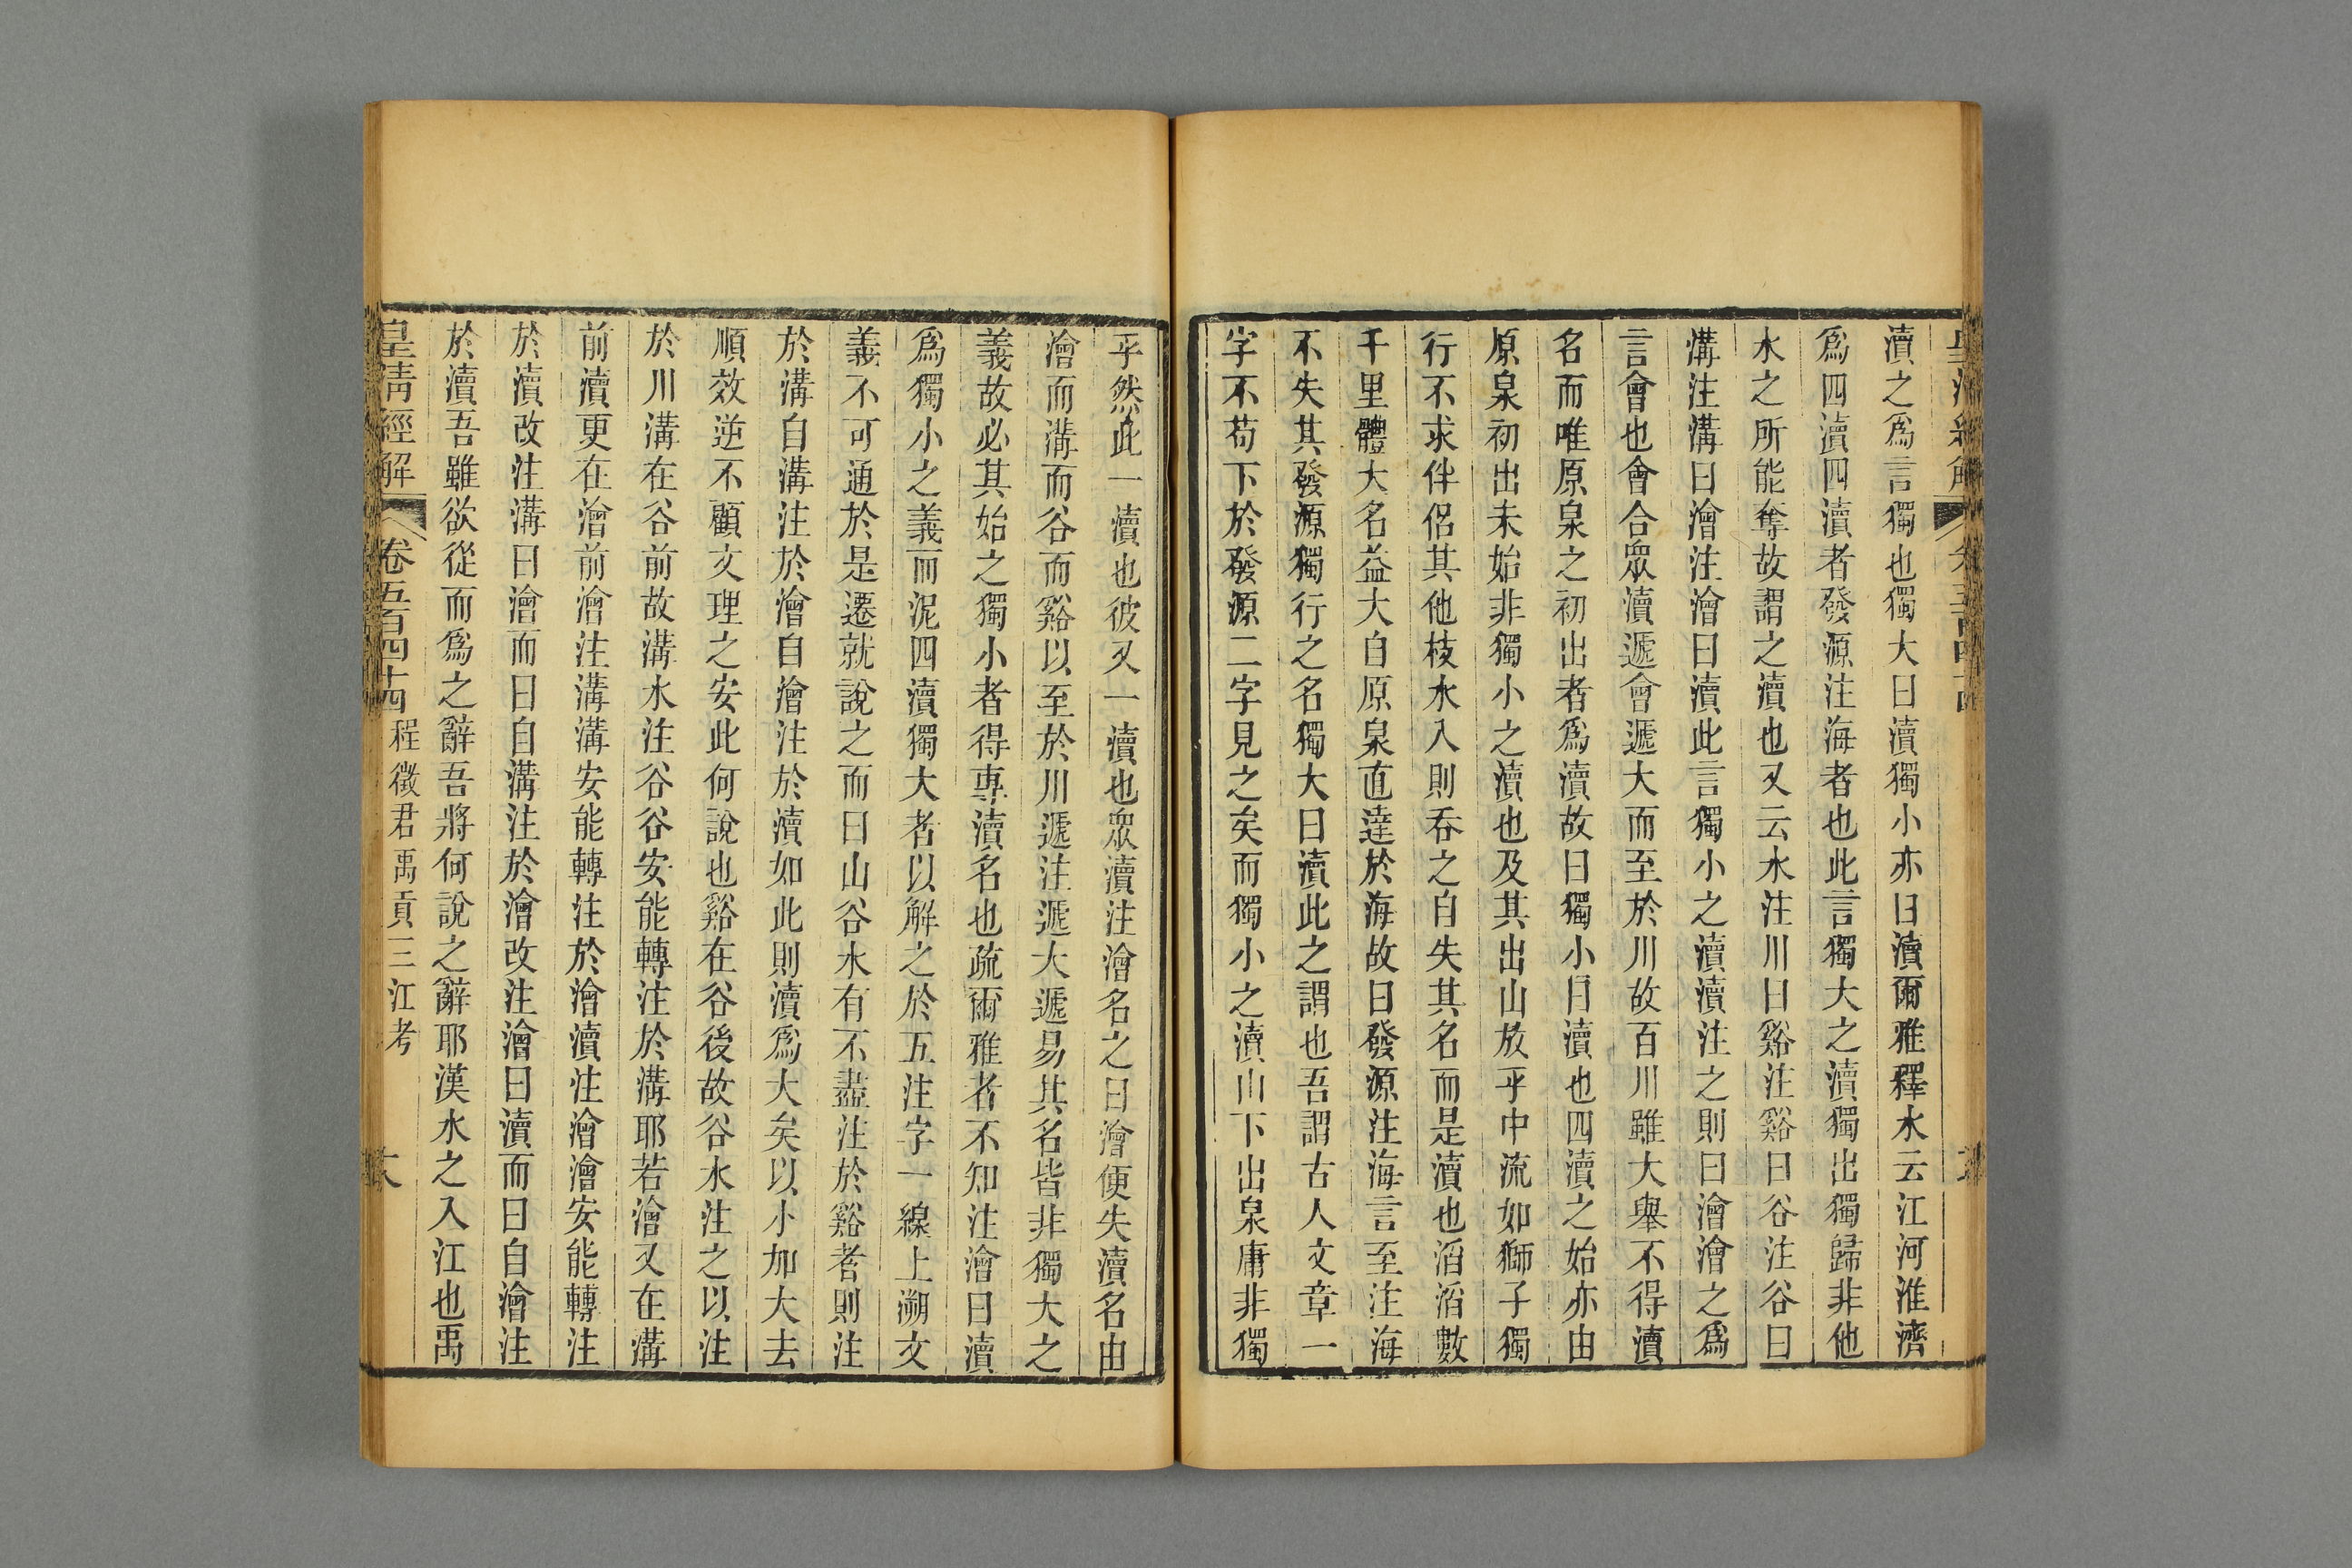 瀆之爲言獨也獨大曰瀆獨小亦曰瀆爾雅釋水云江河淮濟
爲四瀆四瀆者發源注海者也此言獨大之瀆獨出獨歸非他
水之所能奪故謂之瀆也又云水注川曰谿注谿曰谷注谷曰
溝注溝曰澮注澮曰瀆此言獨小之瀆瀆注之則曰澮澮之爲
言會也會合眾瀆遞會遞大而至於川故百川雖大舉不得瀆
名而唯原泉之初出者爲瀆故曰獨小曰瀆也四瀆之始亦由
原泉初出未始非獨小之瀆也及其出山放乎中流如獅子獨
行不求伴侶其他枝水入則吞之自失其名而是瀆也滔滔數
千里體大名益大自原泉直達於海故曰發源注海言至注海
不失其發源獨行之名獨大曰瀆此之謂也吾謂古人文章一
字不苟下於發源二字見之矣而獨小之瀆山下出泉庸非獨
乎然此一瀆也彼又一瀆也眾瀆注澮名之曰澮便失瀆名由
澮而溝而谷而谿以至於川遞注遞大遞易其名皆非獨大之
義故必其始之獨小者得專瀆名也疏爾雅者不知注澮曰瀆
爲獨小之義而泥四瀆獨大者以解之於五注字一線上溯文
義不可通於是遷就說之而曰山谷水有不盡注於谿者則注
於溝自溝注於澮自澮注於瀆如此則瀆爲大矣以小加大去
順效逆不顧文理之安此何說也谿在谷後故谷水注之以注
於川溝在谷前故溝水注谷谷安能轉注於溝耶若澮又在溝
前瀆更在澮前澮注溝溝安能轉注於澮瀆注澮澮安能轉注
於瀆改注溝曰澮而曰自溝注於澮改注澮曰瀆而曰自澮注
於瀆吾雖欲從而爲之辭吾將何說之辭耶漢水之入江也禹
皇清經解 卷五百四十四 程徵君禹貢三江考